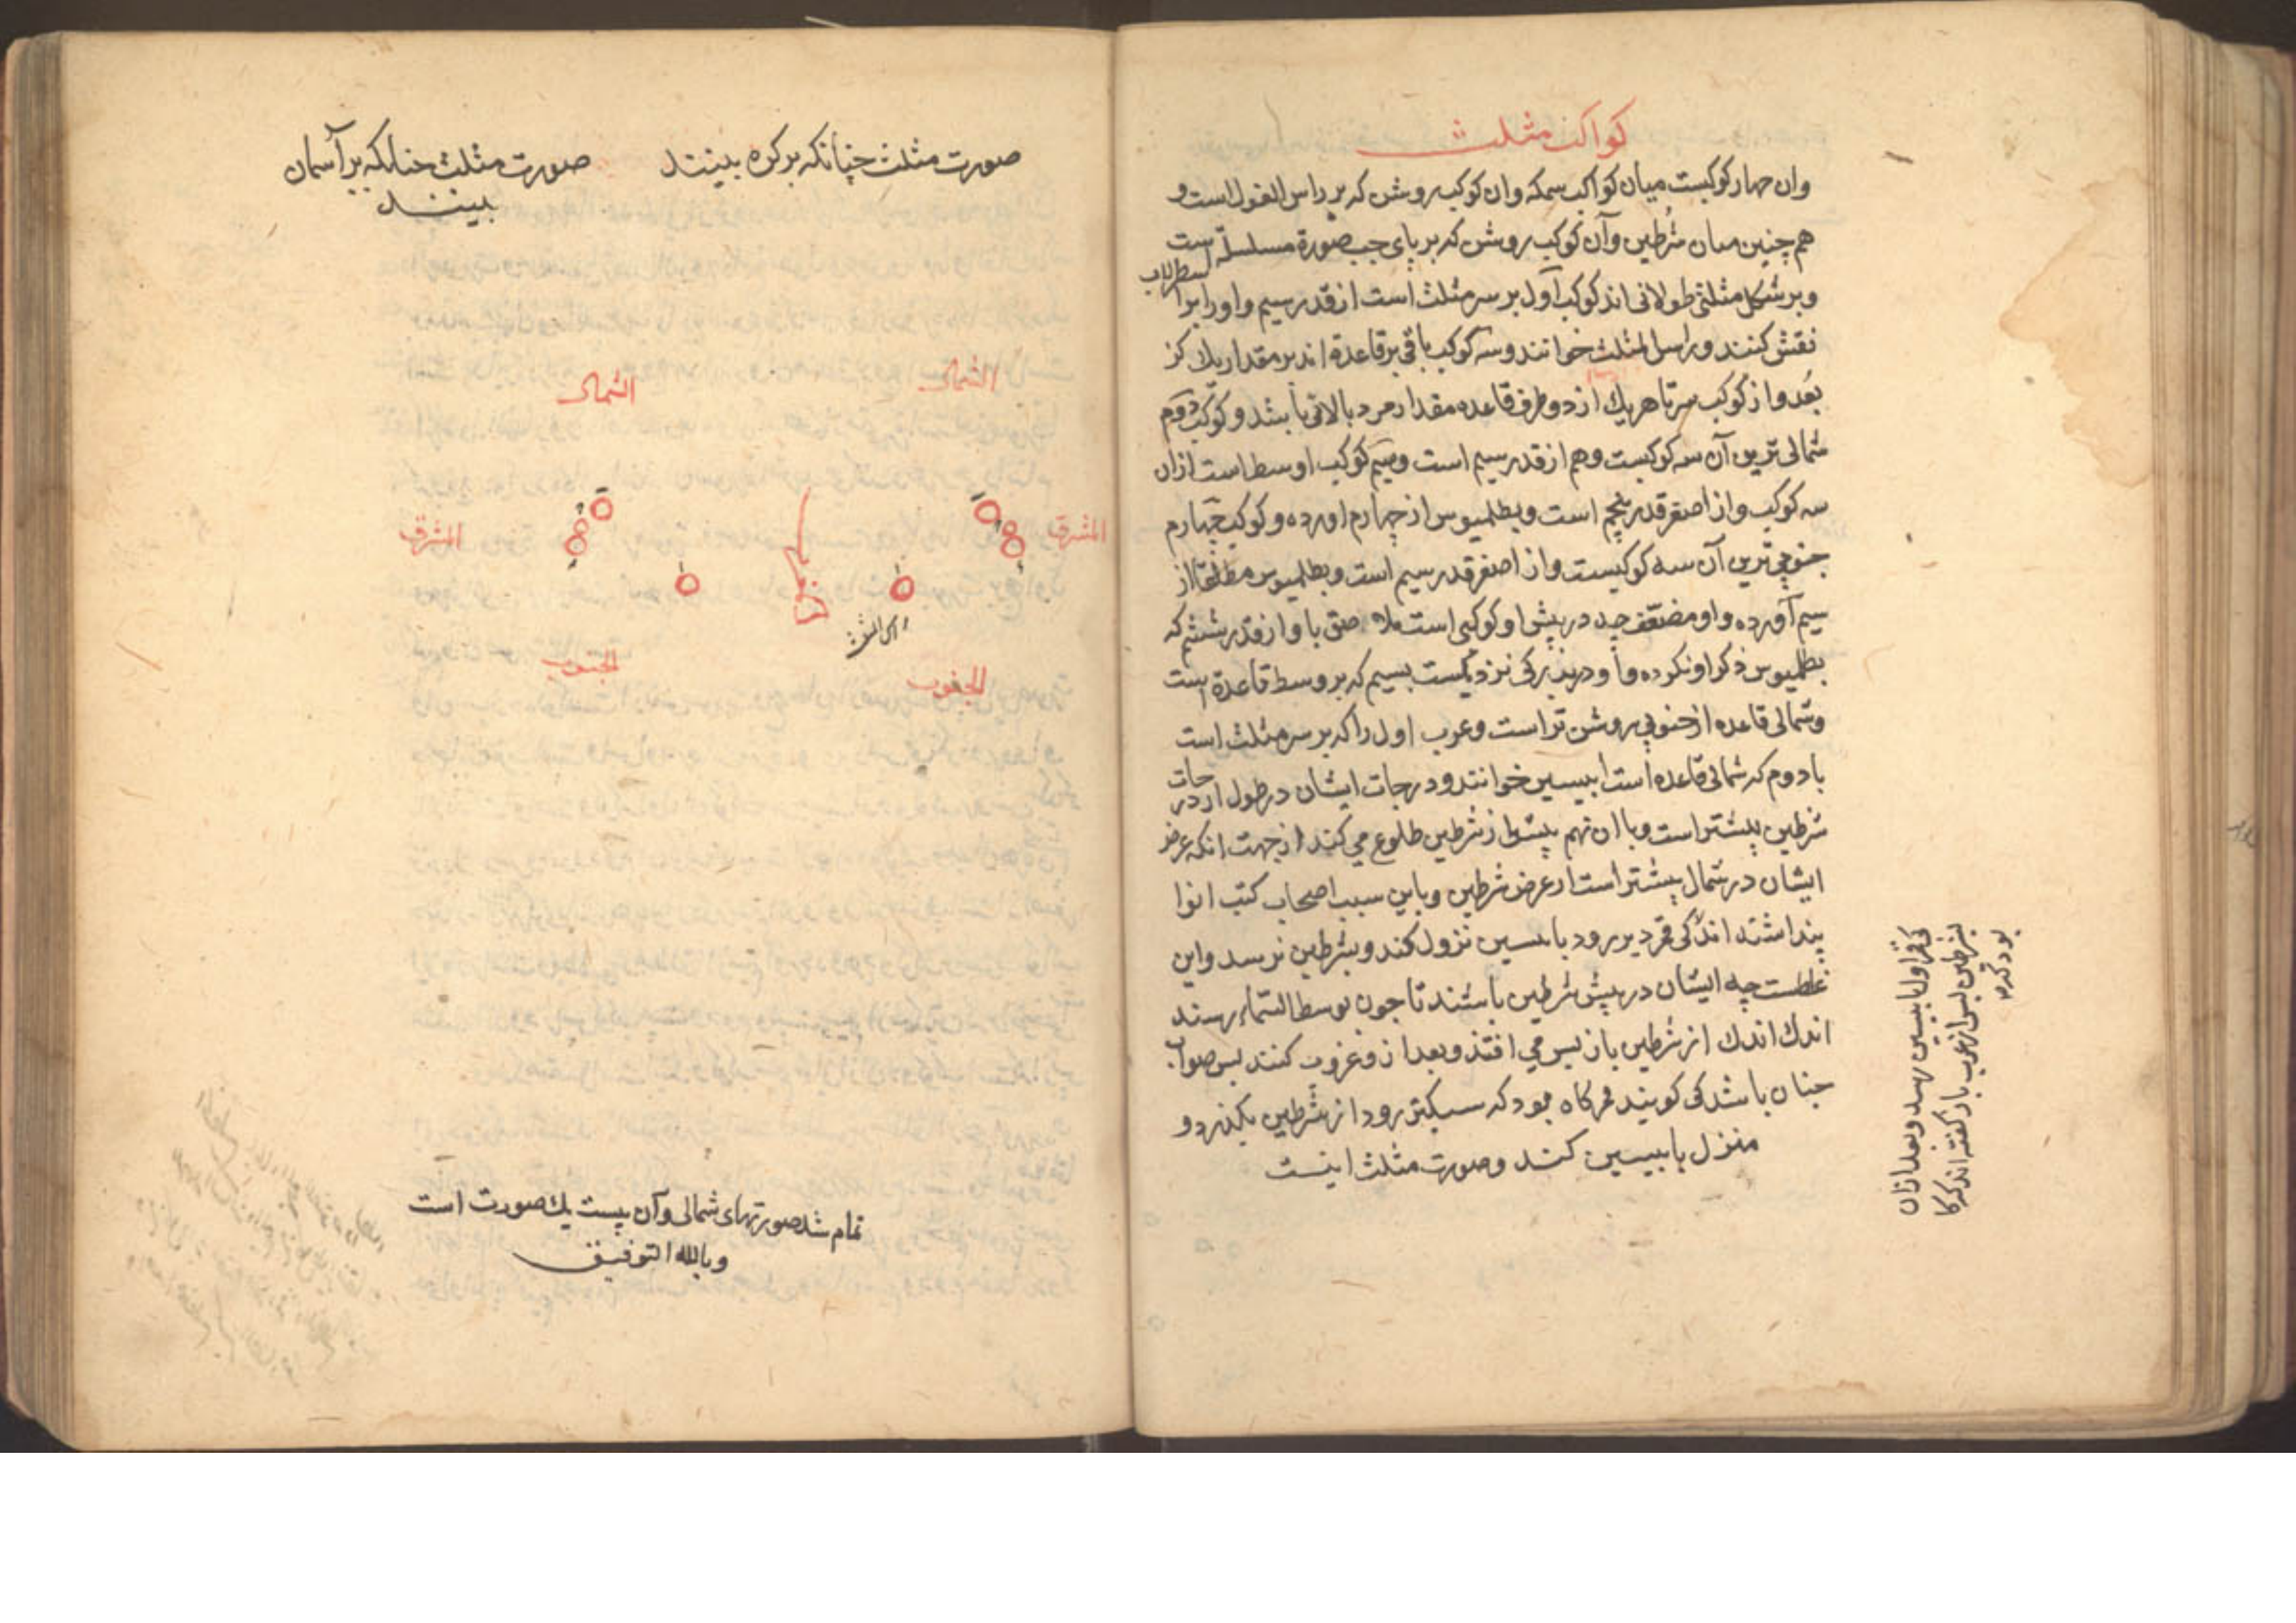 کواکب مثلث
وان چهار کوکبست میان کواکب سمکه وان کوکب روشن که بر راس الغول است و
هم چنین میان شرطین و آن کوکب روشن که بر پای چپ صورة مسلسله است
و بر شکل مثلثی طولانی اند کوکب اول بر سر مثلث است از قدر سیم و او را بر اسطرلاب
نقش کنند و راس المثلث خوانند و سه کوکب باقی بر قاعدة اند بر مقدار یك گز
بعد و از کوکب سر تا هر یك از دو طرف قاعده مقدار مرد بالائی باشد و کوکب دوم
شمالی ترین آن سه کوکبست و هم از قدر سیم است و سیم کوکب اوسط است از ان
سه کوکب و از اصغر قدر پنجم است و بطلمیوس از چهارم اورده و کوکب چهارم
جنوبی ترین آن سه کوکبست و از اصغر قدر سیم است و بطلمیوس مطلقا از
سیم آورده و او مضعف چه در پیش او کوکبی است ملا صق با و از قدر ششم که
بطلمیوس ذکر او نکرده و او در بزرکی نزدیکست بسیم که بر وسط قاعدة است
و شمالی قاعده از جنوبی روشن تر است و عرب اول را که بر سر مثلث است
با دوم که شمالی قاعده است ابیسین خوانند و درجات ایشان در طول از درجات
شرطین بیشتر است و با ان نهم پیش از شرطین طلوع می کنند از جهت انکه عرض
ایشان در شمال بیشتر است از عرض شرطین و باین سبب اصحاب کتب انوا
پنداشته اند کی قمر دیر رود بابیسین نزول کند و بشرطین نرسد و این
غلطست چه ایشان در پیش شرطین باشند تا چون بوسط السماء رسند
اندك اندك از شرطین باز پس می افتند و بعد از و غروب کنند پس صواب
چنان باشد کی کویند هر کاه بود که سبکتر رود از شرطین بکذرد و
منزل بابیسین کند و صورت مثلث اینست
کی قمر اول بابیسین رسد و بعد از ان
بشرطین پس از عرب باز کفته اند که کا
بود که قمر
صورت مثلث چنانکه بر کره بینند
صورت مثلث چنانکه بر آسمان
بینند
الشمال
الشمال
المشرق
المشرق
راس المثلث
الجنوب
الجنوب
تمام شد صورتهای شمالی و آن بیست یك صورت است
و بالله التوفیق